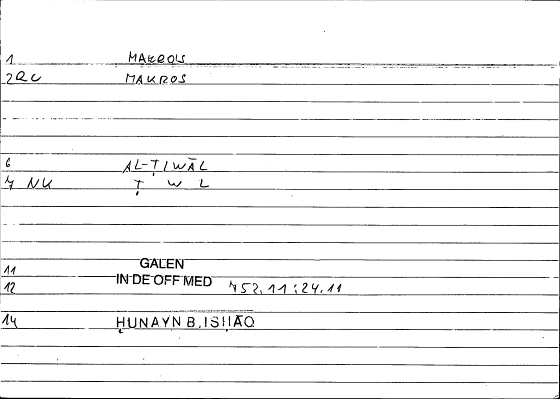 1 MAKROS
2 RC MAKROS
6 AL-ṬIWĀL
7 NK Ṭ W L
11 GALEN
12 IN DE OFF MED 752.11:24.11
14 ḤUNAYN B. ISḤĀQ